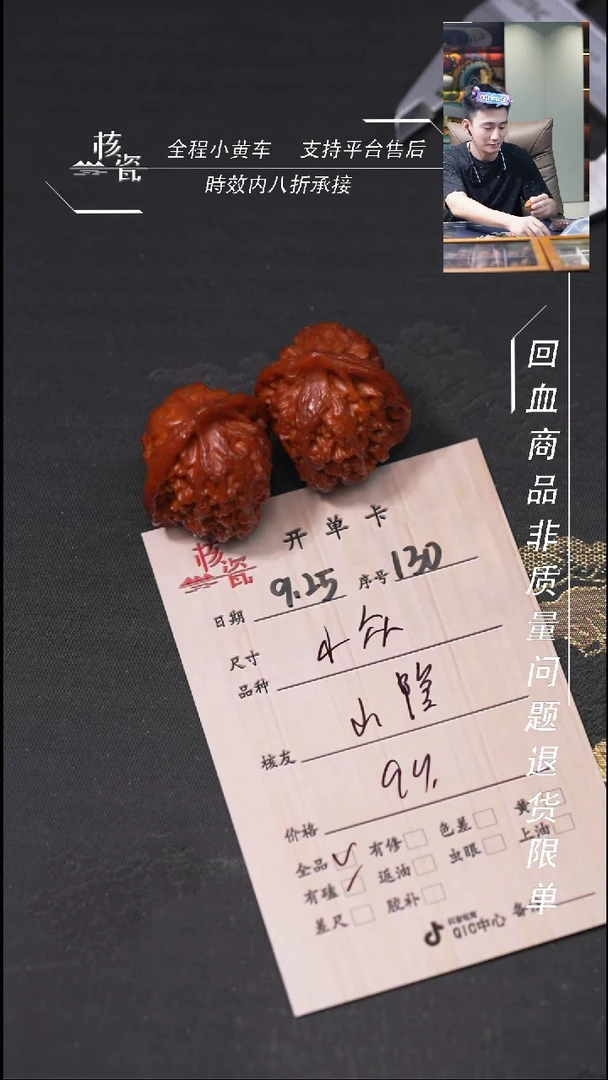 核瓷
全程小黄车 支持平台售后
時效内八折承接
回血商品非质量问题退货限单
核瓷
开单卡
日期 9.25 序号 130
尺寸
品种
核友
价格
全品 有修 色差 黄
有磕 返油 虫眼 上油
差尺 胶补
抖音电商
QIC中心 备